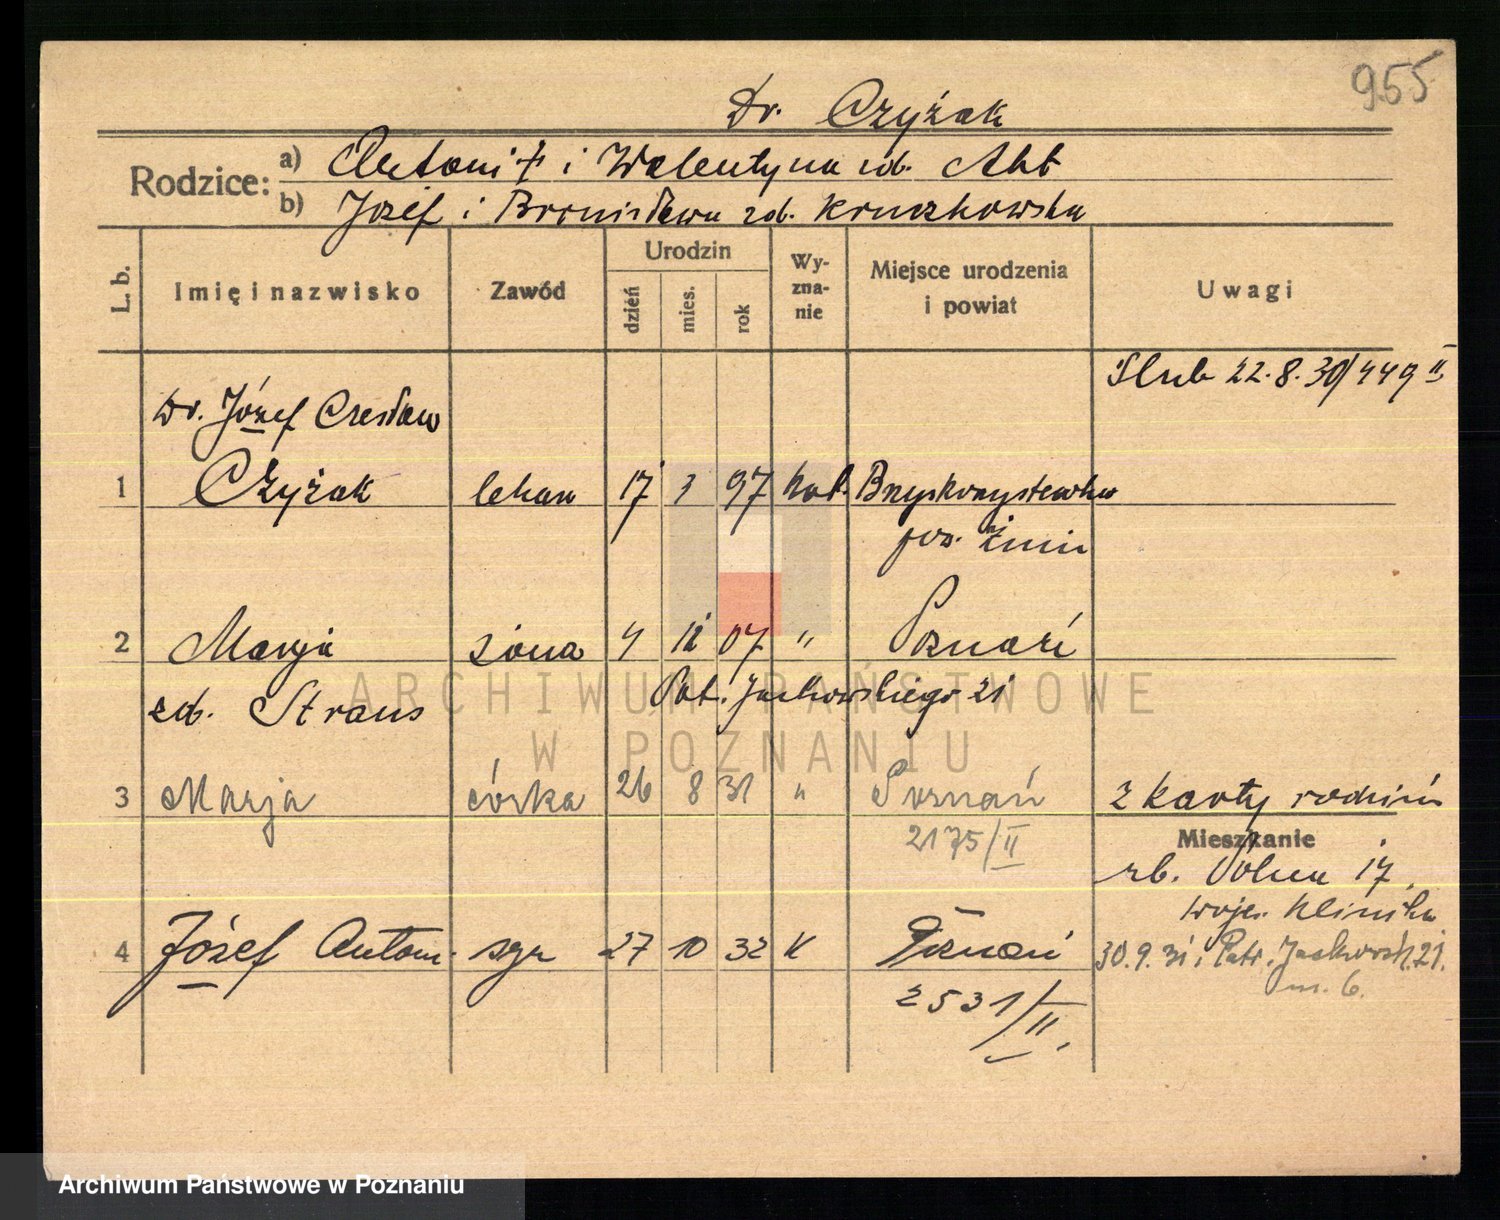 955
Dr. Czyżak
Rodzice: a) Antoni + i Walentyna zd. Abt
b) Józef i Bronisława zd. Kruszkowska
L. b. Imię i nazwisko Zawód Urodzin dzień mies. rok Wy-zna-nie Miejsce urodzenia i powiat Uwagi
Ślub 22.8.30/449 II
Dr. Józef Czesław
1 Czyżak lekarz 17 3 97 kat.
pow. Żnin
2 Marja żona 4 12 07 " Poznań
zd. Straus Pat. Jackowskiego 21
3 Marja córka 26 8 31 " Poznań 2 karty rodzin
2175/II Mieszkanie
17
wojs. Klinika
4 Józef Antoni syn 27 10 32 K Poznań 30.9.31 Patr. Jackowsk. 21.
m. 6.
2531/II
ARCHIWUM PAŃSTWOWE
W POZNANIU
Archiwum Państwowe w Poznaniu